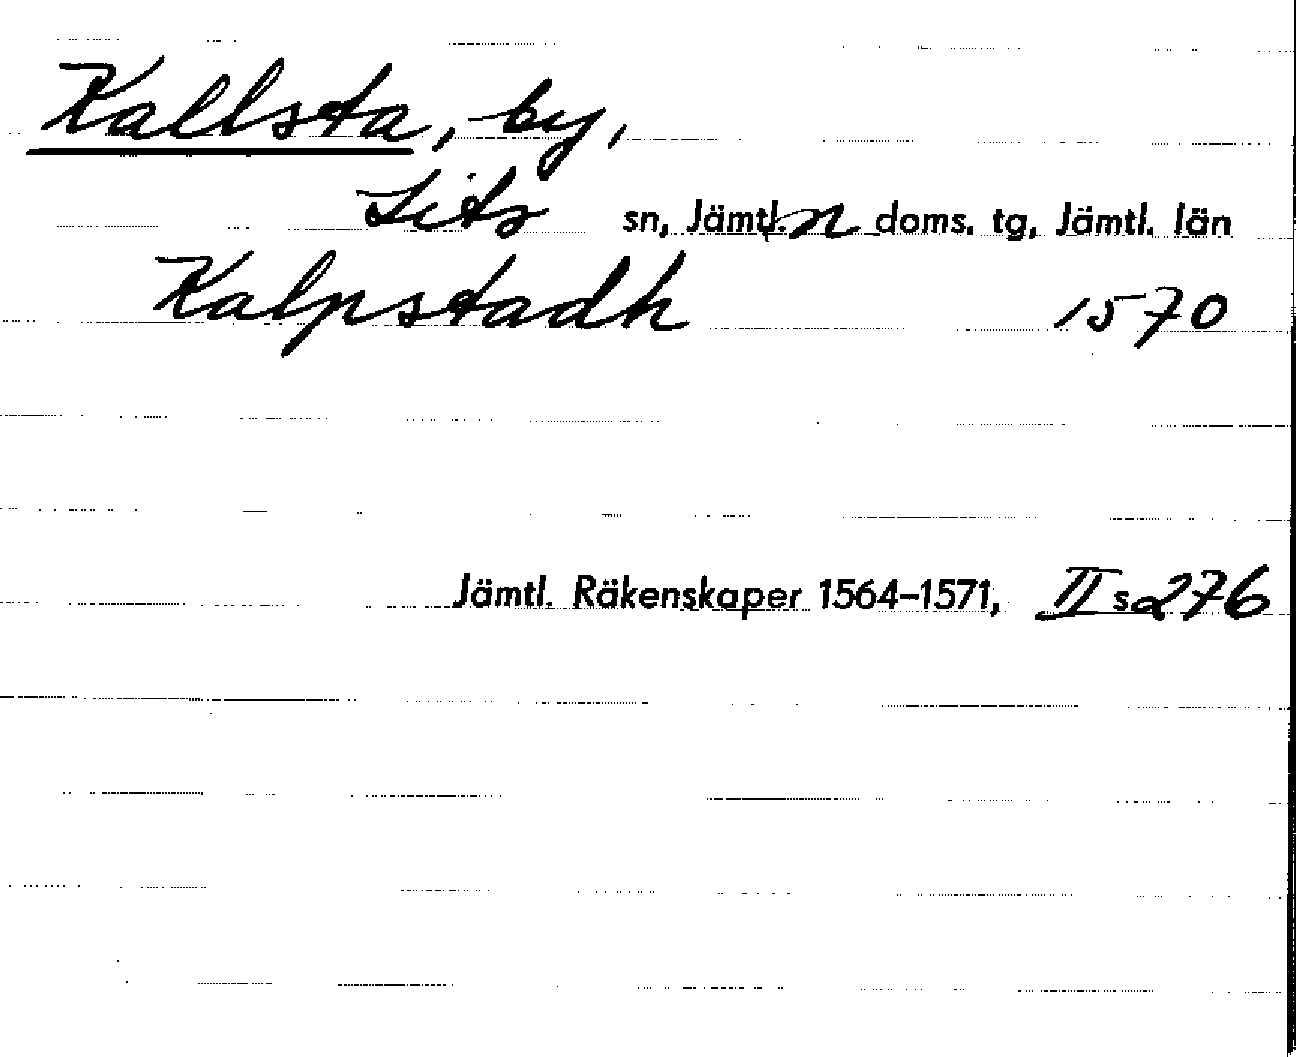 Kallsta, by,
Lits sn, Jämtl. n doms. tg, Jämtl. län
Kalpstadh 1570
Jämtl. Räkenskaper 1564–1571, II s 276